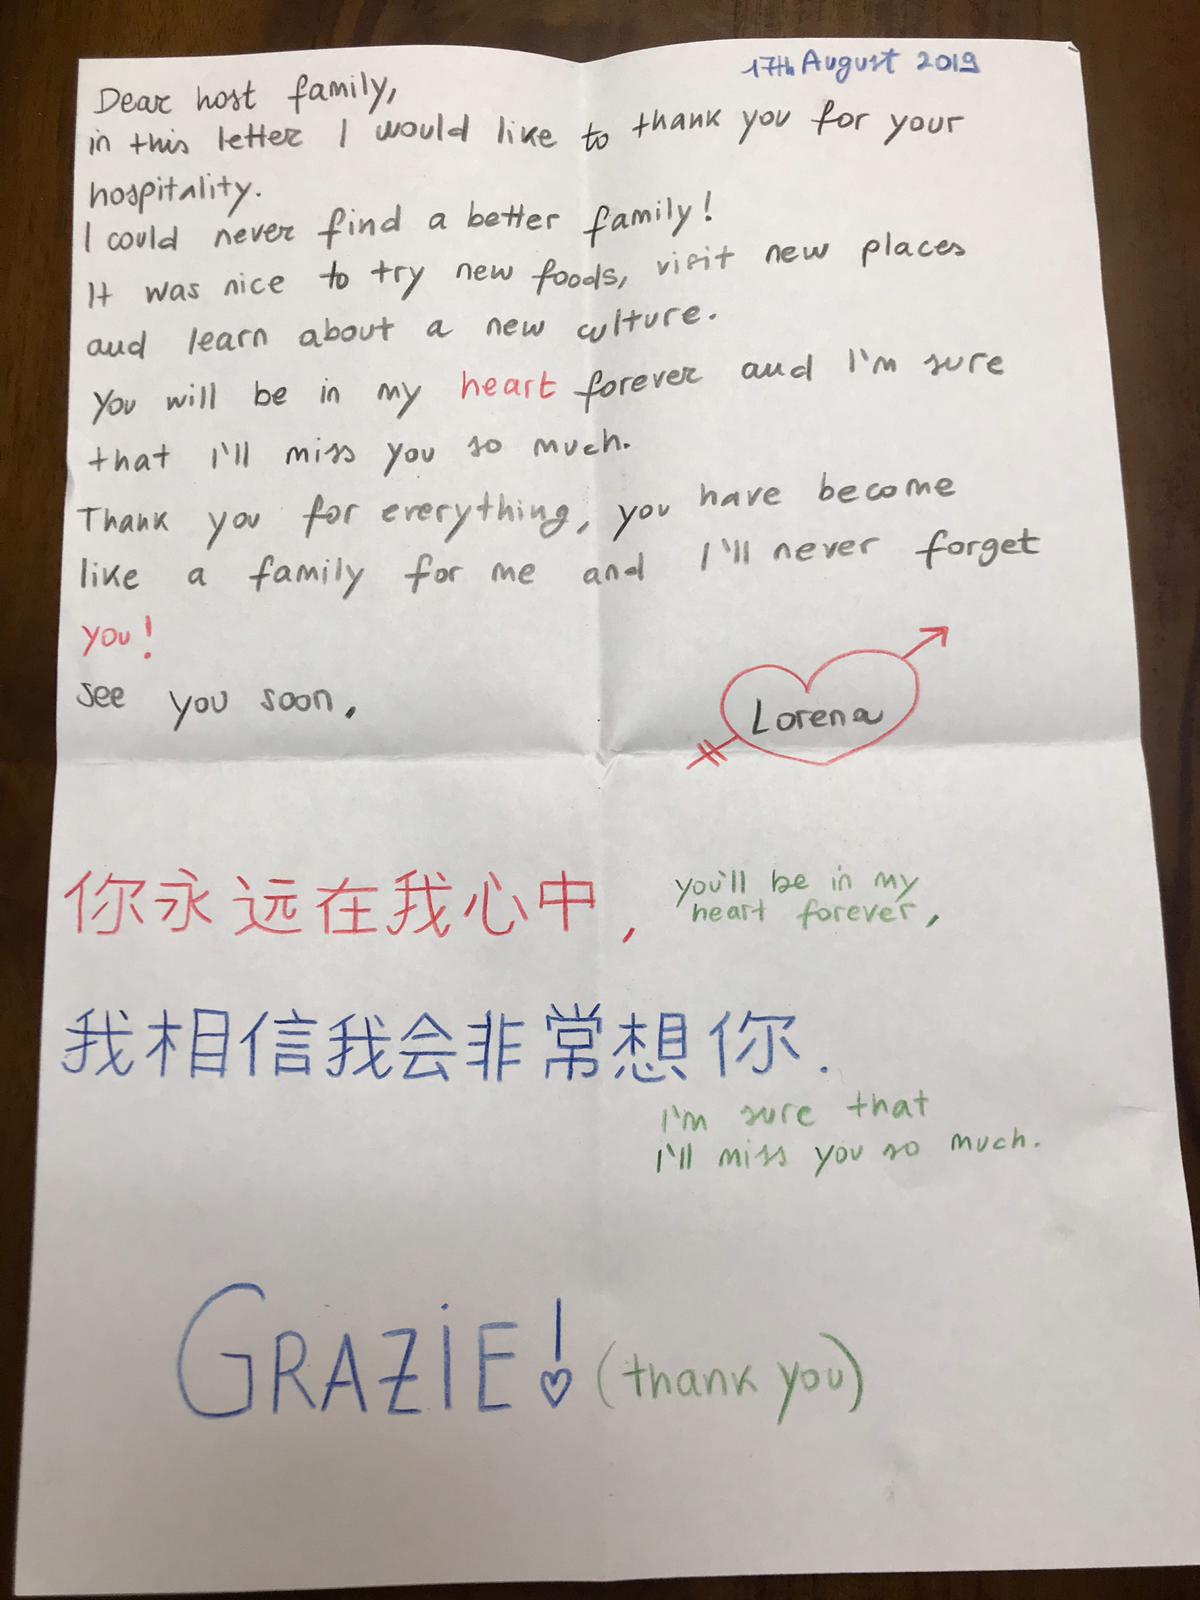 17th August 2019
Dear host family,
in this letter I would like to thank you for your
hospitality.
I could never find a better family!
It was nice to try new foods, visit new places
and learn about a new culture.
You will be in my heart forever and I'm sure
that I'll miss you so much.
Thank you for everything, you have become
like a family for me and I'll never forget
you!
See you soon,
Lorena
你永远在我心中,
you'll be in my
heart forever,
我相信我会非常想你.
I'm sure that
I'll miss you so much.
GRAZIE! (thank you)